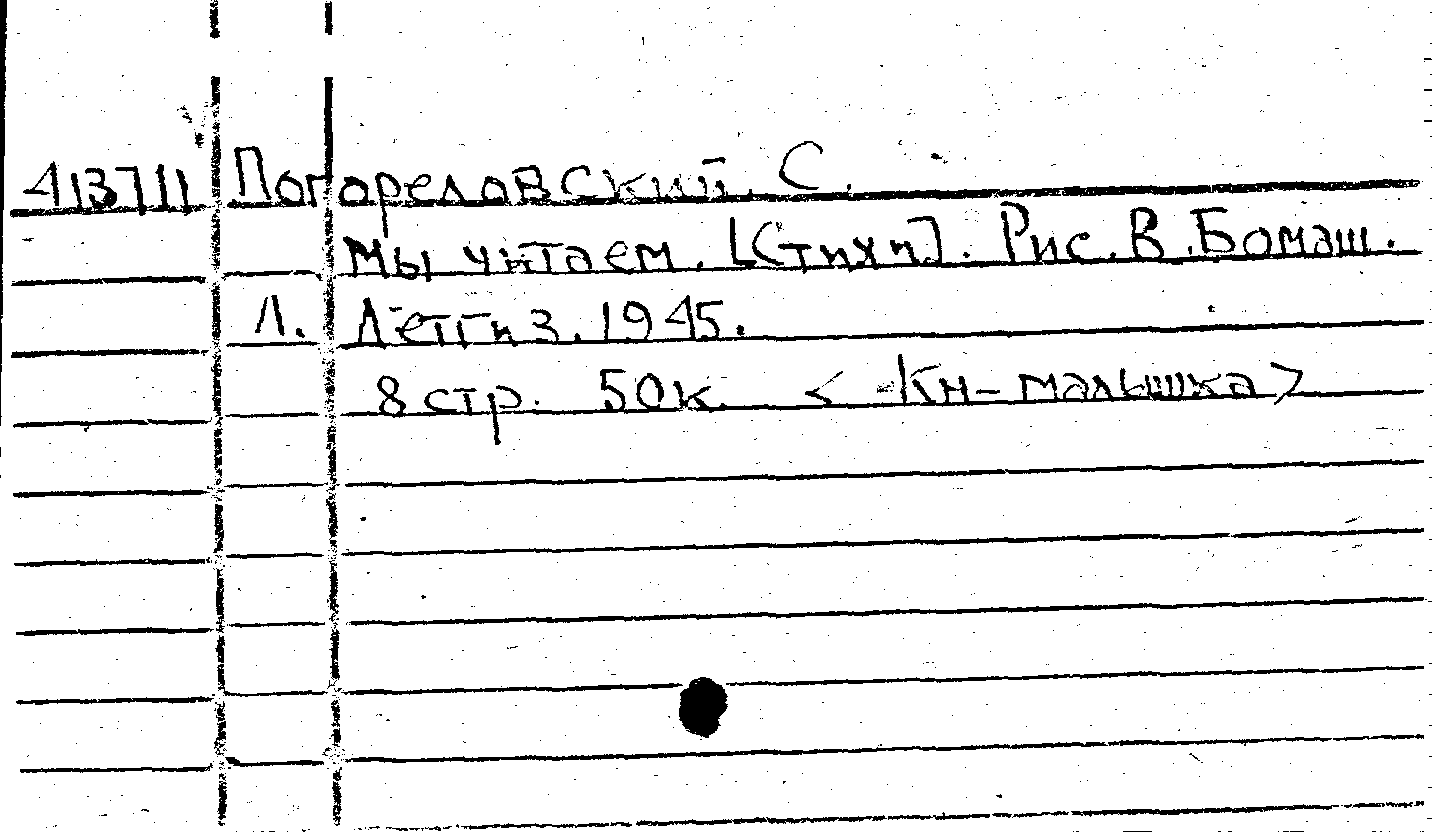 413711 Погореловский С.
Мы читаем. [Стихи]. Рис. В. Бомаш.
Л. Детгиз. 1945.
8 стр. 50к. < Кн-малышка>